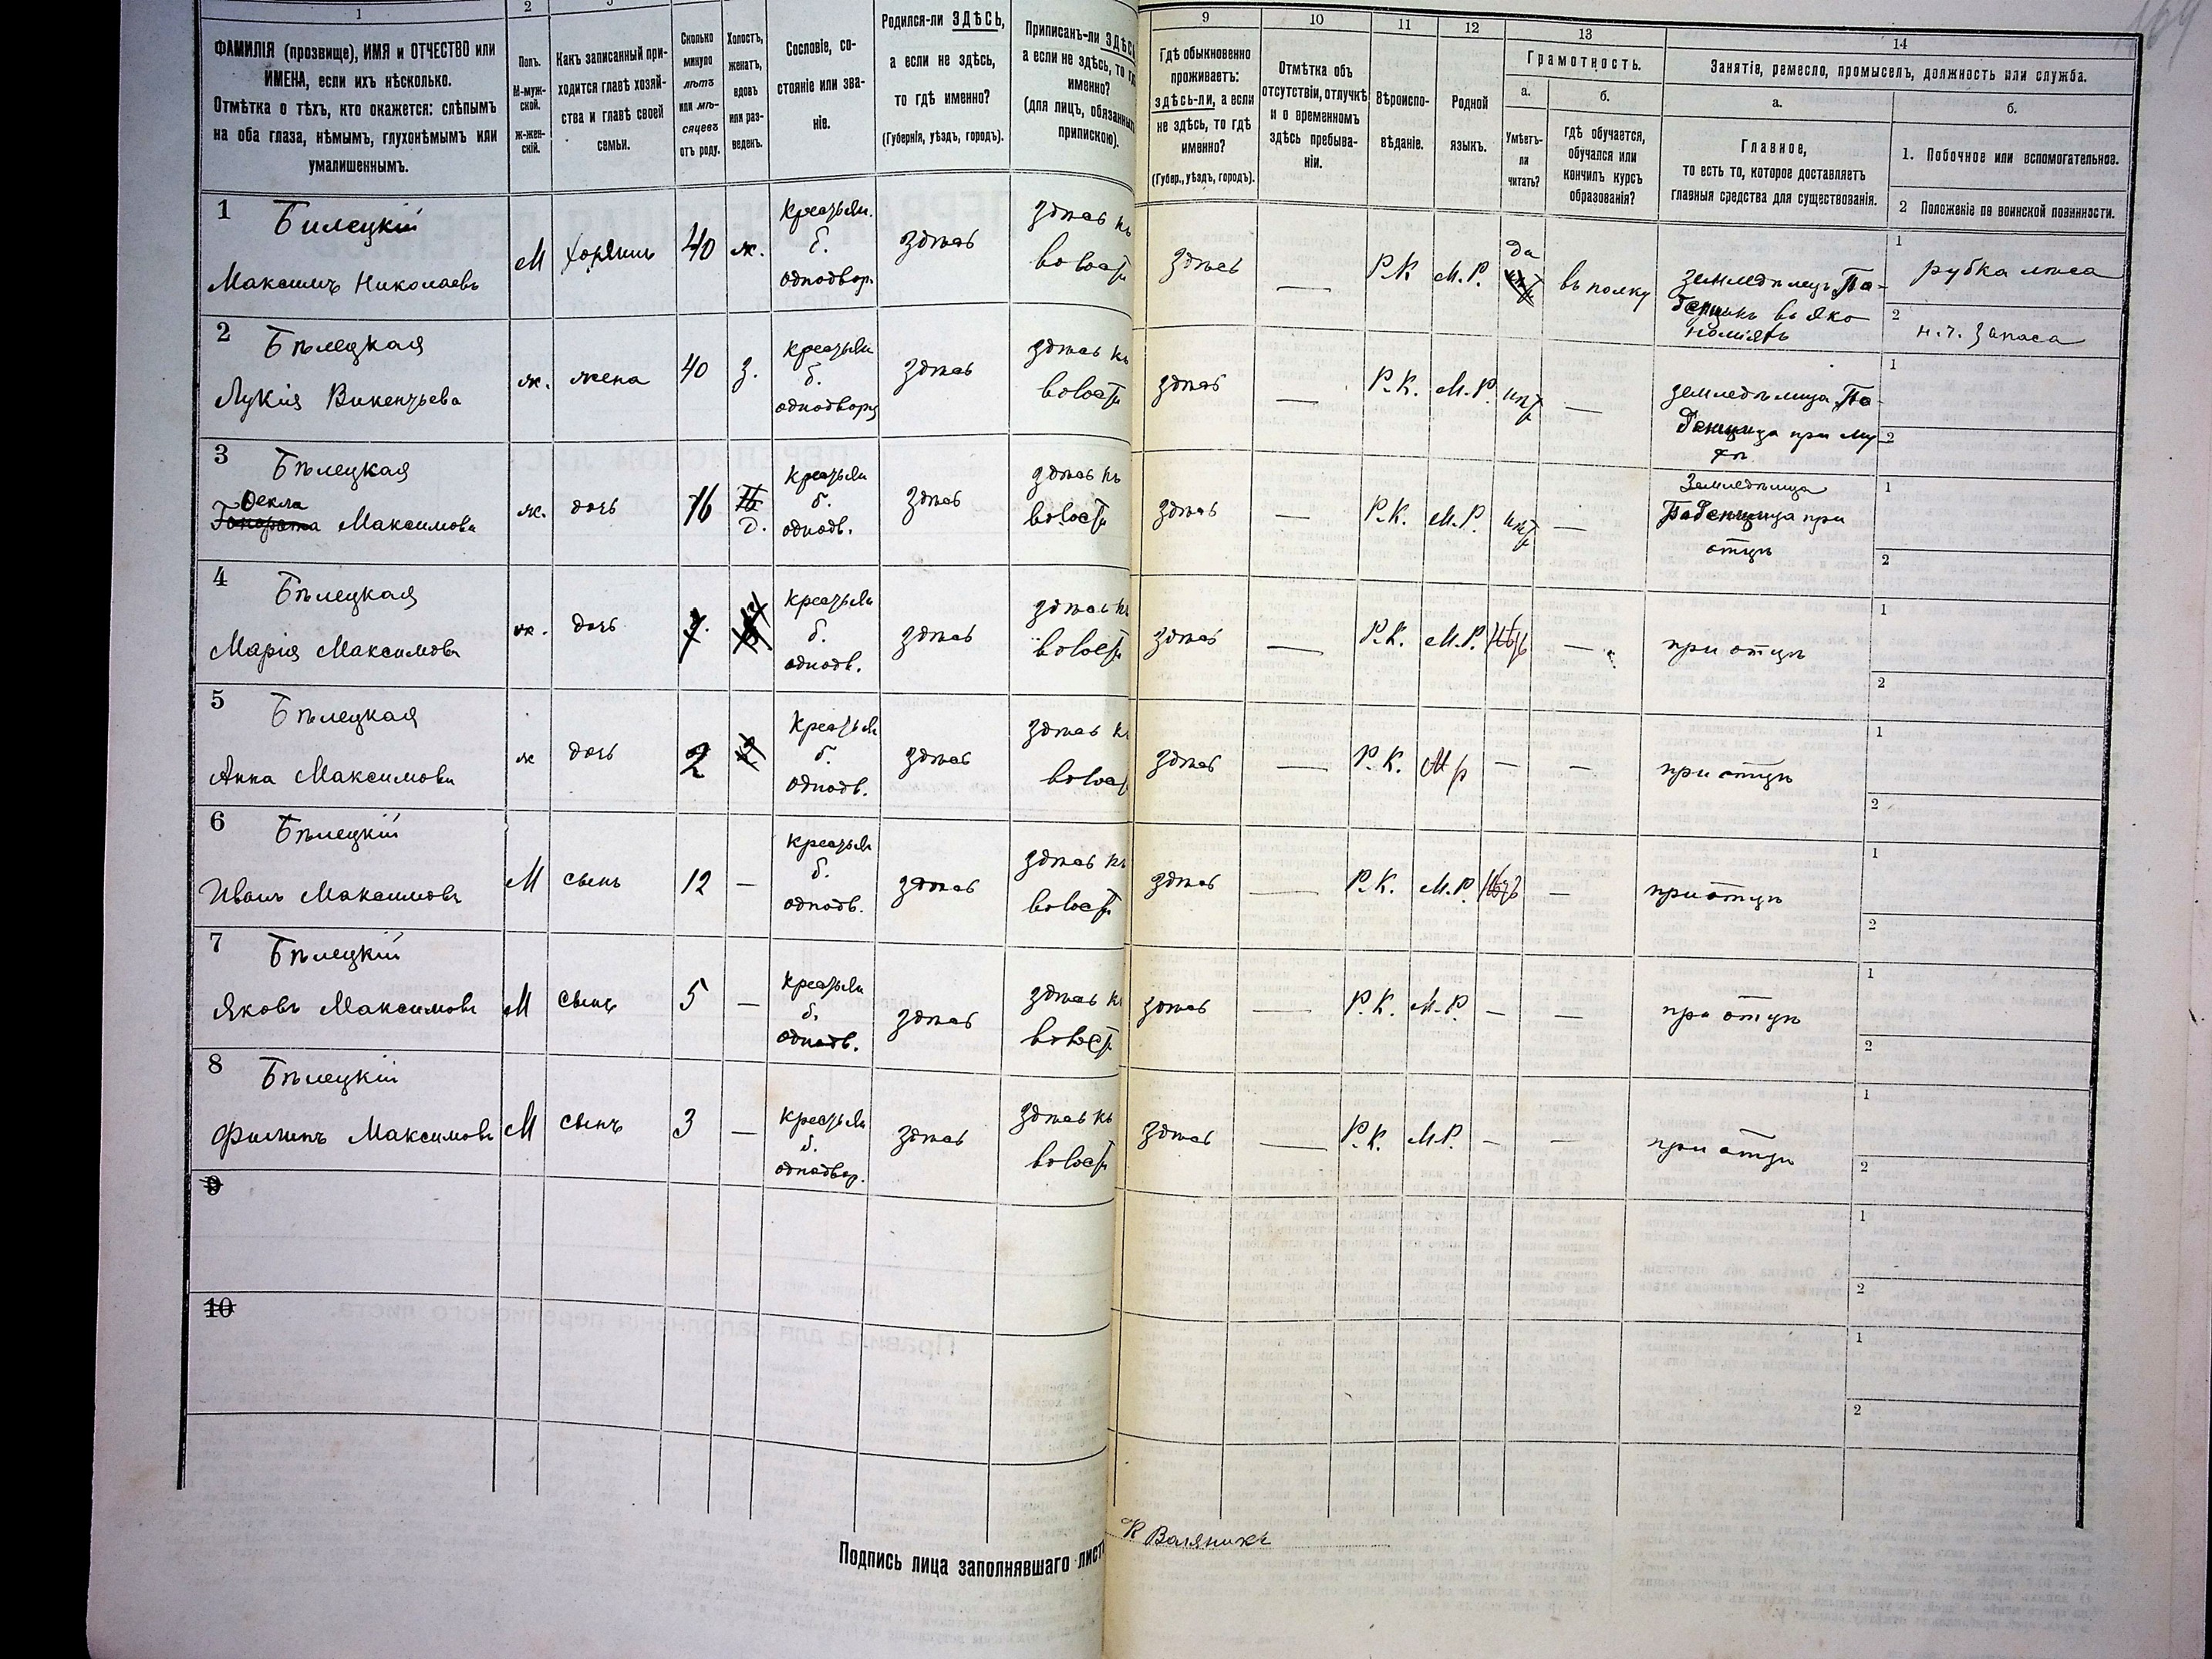 1
ФАМИЛІЯ (прозвище), ИМЯ и ОТЧЕСТВО или
ИМЕНА, если ихъ нѣсколько.
Отмѣтка о тѣхъ, кто окажется: слѣпымъ
на оба глаза, нѣмымъ, глухонѣмымъ или
умалишеннымъ.
2
Полъ.
М-муж-
ской.
ж-жен-
скій.
Какъ записанный при-
ходится главѣ хозяй-
ства и главѣ своей
семьи.
Сколько
минуло
лѣтъ
или мѣ-
сяцевъ
отъ роду.
Холостъ,
женатъ,
вдовъ
или раз-
веденъ.
Сословіе, со-
стояніе или зва-
ніе.
Родился-ли ЗДѢСЬ,
а если не здѣсь,
то гдѣ именно?
(Губернія, уѣздъ, городъ).
Приписанъ-ли
а если не здѣсь, то
именно?
(для лицъ, обязанныхъ
припискою).
9
Гдѣ обыкновенно
проживаетъ:
здѣсь-ли, а если
не здѣсь, то гдѣ
именно?
(Губер., уѣздъ, городъ).
10
Отмѣтка объ
отсутствіи, отлучкѣ
и о временномъ
здѣсь пребыва-
ніи.
11
Вѣроиспо-
вѣданіе.
12
Родной
языкъ.
13
Грамотность.
а.
Умѣетъ-
ли
читать?
б.
гдѣ обучается,
обучался или
кончилъ курсъ
образованія?
14
Занятіе, ремесло, промыселъ, должность или служба.
а.
Главное,
то есть то, которое доставляетъ
главныя средства для существованія.
б.
1. Побочное или вспомогательное.
2 Положеніе по воинской повинности.
1
Билецкій
Максимъ Николаевъ
М
хозяинъ
40
ж.
крестьян.
б.
однодвор.
здѣсь
здѣсь къ
волости
здѣсь
—
Р.К
М.Р.
да
въ полку
земледѣлецъ По-
денщикъ въ эко
номіяхъ
1
рубка лѣса
2
н.ч. запаса
2
Бѣлецкая
Лукія Викентьева
ж.
жена
40
з.
крестьян
б.
однодворц
здѣсь
здѣсь къ
волости
здѣсь
—
Р.К.
М.Р.
нѣт
—
земледѣлица По-
денщица при му
жѣ
1
2
3
Бѣлецкая
Фекла
Максимова
ж.
дочь
16
д.
крестьян
б.
однодв.
здѣсь
здѣсь къ
волости
здѣсь
—
Р.К.
М.Р.
нѣт
—
Земледѣлица
Поденщица при
отцѣ
1
2
4
Бѣлецкая
Марія Максимова
ж.
дочь
7
крестьян
б.
однодв.
здѣсь
здѣсь къ
волости
здѣсь
—
Р.К.
М.Р.
—
при отцѣ
1
2
5
Бѣлецкая
Анна Максимова
ж
дочь
2
крестьян
б.
однодв.
здѣсь
здѣсь к
волост
здѣсь
—
Р.К.
М р
—
—
при отцѣ
1
2
6
Бѣлецкій
Иванъ Максимовъ
М
сынъ
12
—
крестьян
б.
однодв.
здѣсь
здѣсь къ
волости
здѣсь
—
Р.К.
М.Р.
—
при отцѣ
1
2
7
Бѣлецкій
Яковъ Максимовъ
М
сынъ
5
—
крестьян
б.
однодв.
здѣсь
здѣсь къ
волости
здѣсь
—
Р.К.
М.Р.
—
—
при отцѣ
1
2
8
Бѣлецкій
Филипъ Максимовъ
М
сынъ
3
—
крестьян
б.
однодвор.
здѣсь
здѣсь къ
волости
здѣсь
—
Р.К.
М.Р.
—
—
при отцѣ
1
2
9
1
2
10
1
2
Подпись лица заполнявшаго листъ